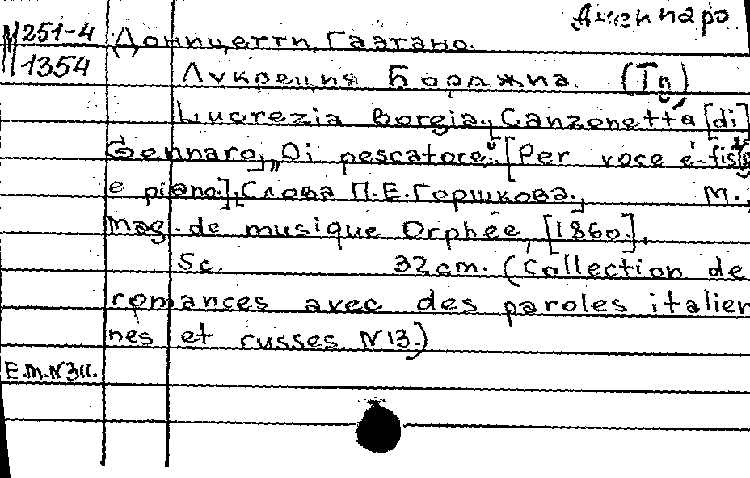 Дженнаро
M 251-4 Доницетти, Гаэтано.
1354 Лукреция Борджиа. (Тв)
Lucrezia Borgia, Canzonetta [di]
Gennaro, „Di pescatore". [Per voce e
e piano.], Слова П.Е.Горшкова., М.,
mag. de musique Orphée, [1860.],
Sc. 32 cm. (Collection de
romances avec des paroles italien
nes et russes N13.)
E.M.N311.